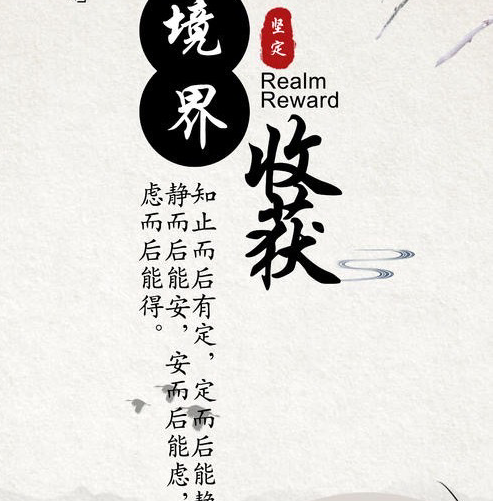 境界
坚定
Realm
Reward
收获
知止而后有定，定而后能静
静而后能安，安而后能虑，
虑而后能得。